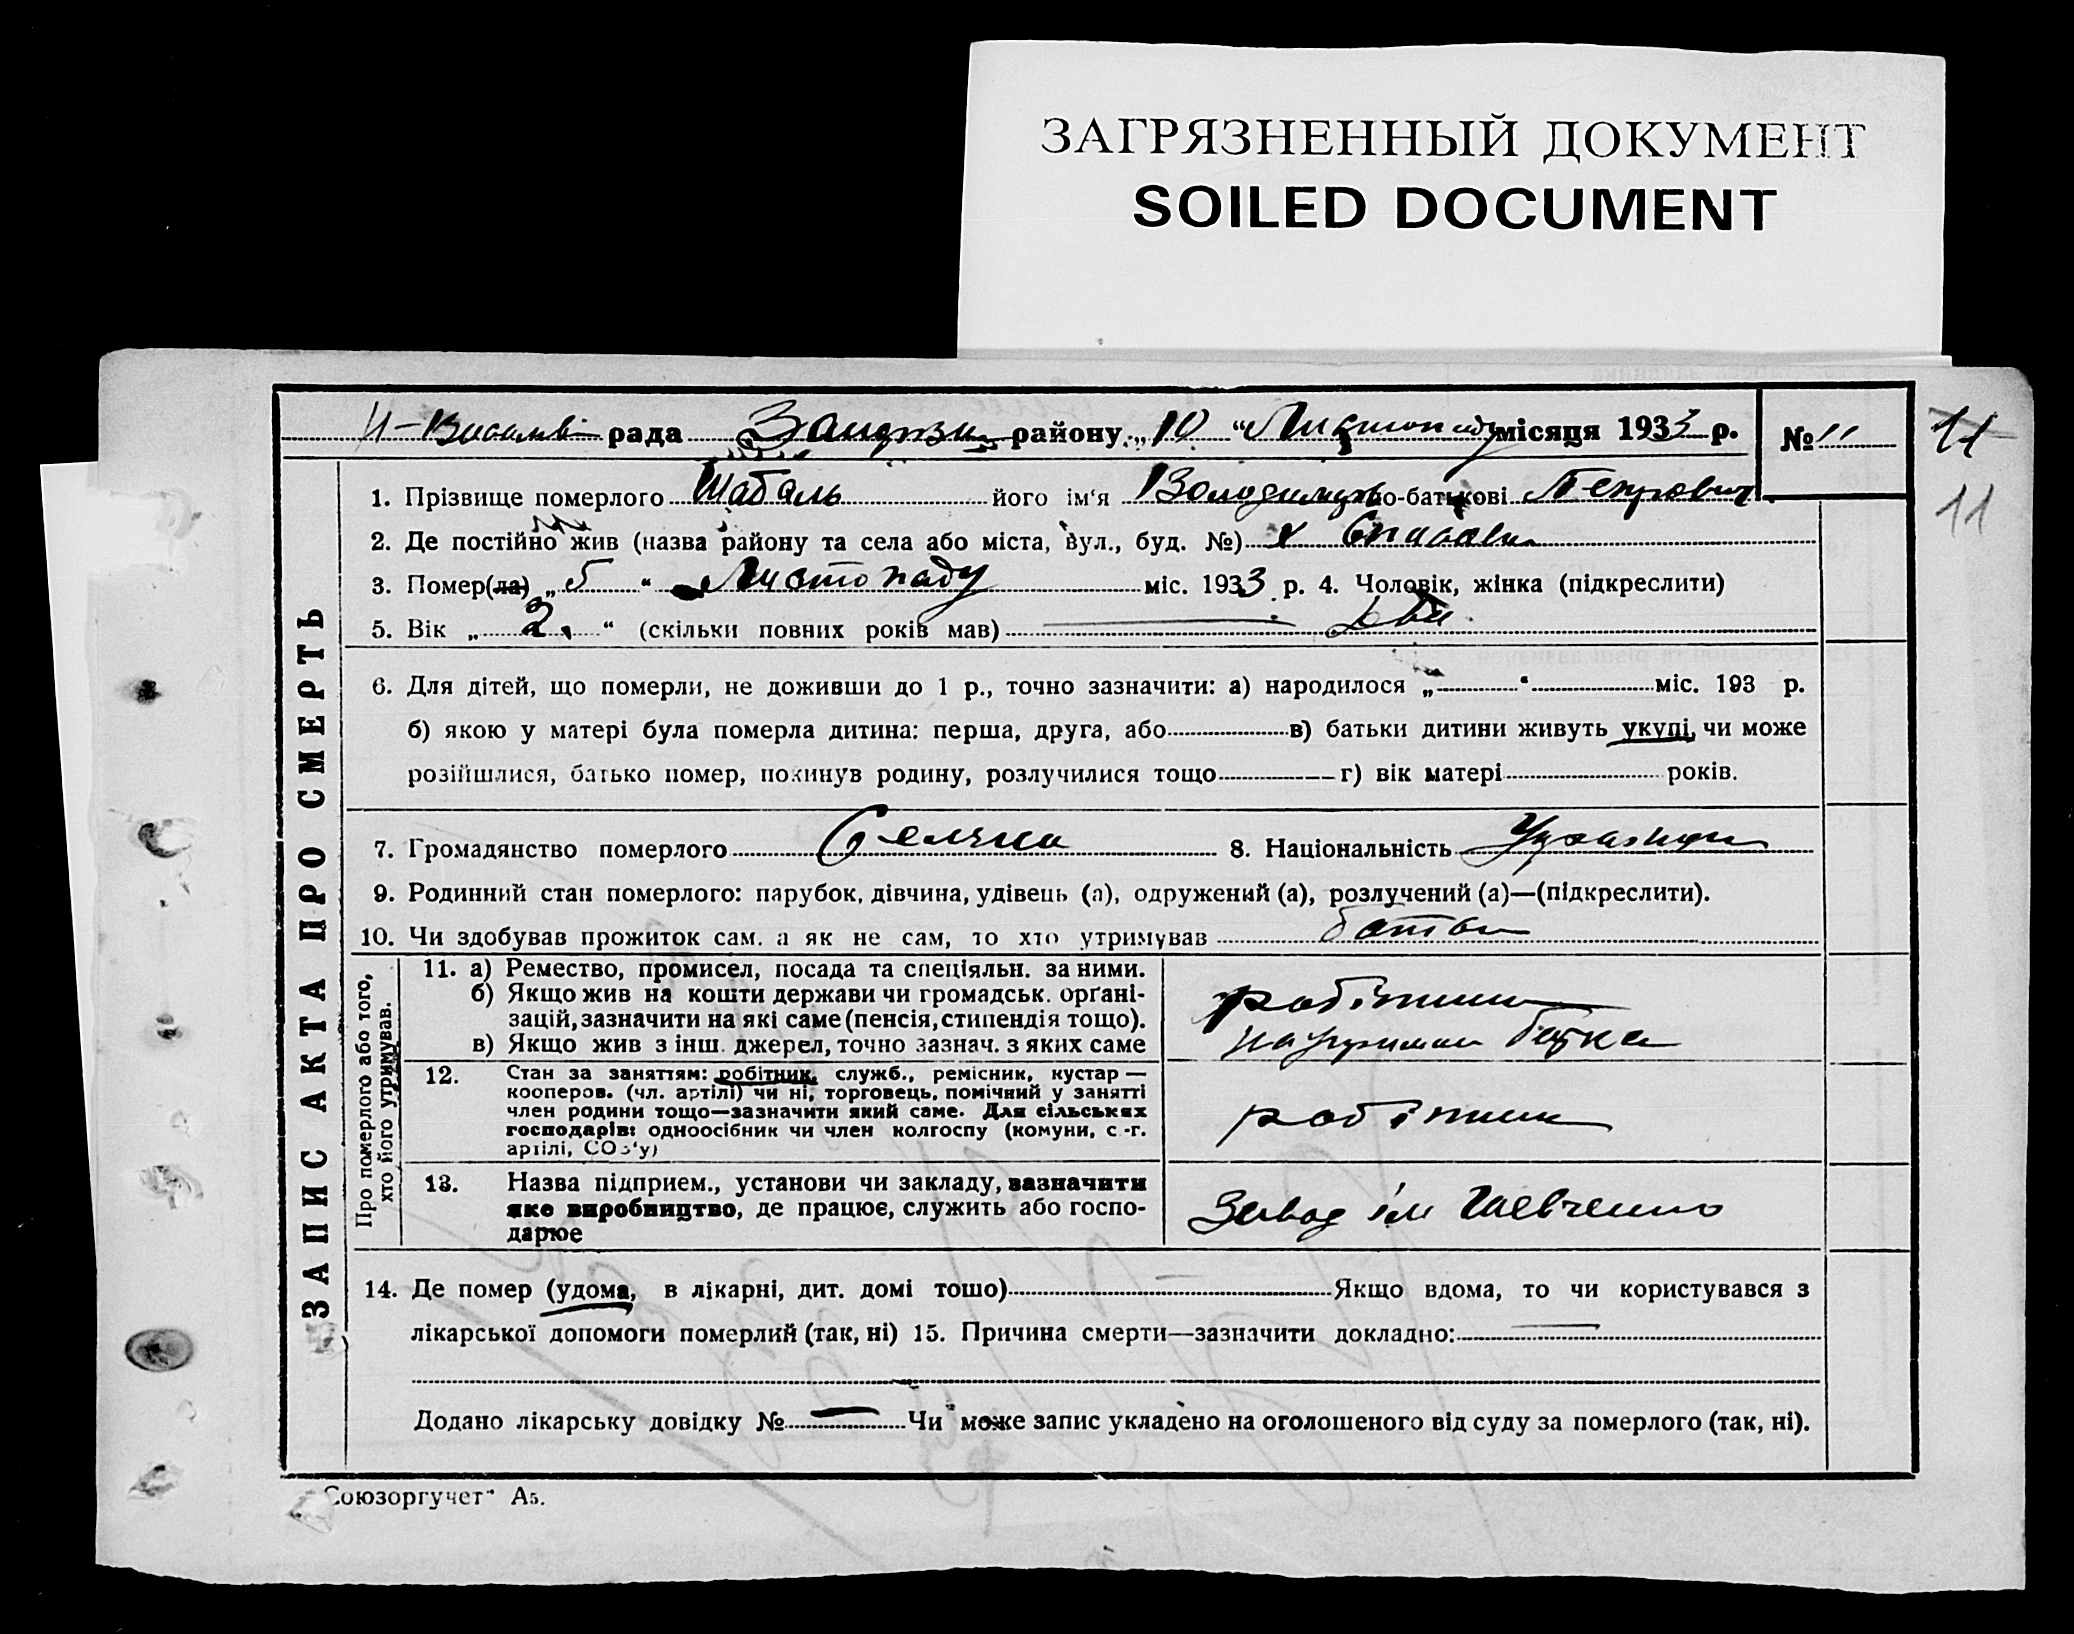 ЗАГРЯЗНЕННЫЙ ДОКУМЕНТ
SOILED DOCUMENT
рада району „10“ Листопаду місяця 1933 р. № 11
11
11
1. Прізвище померлого Шабаль його ім'я Володимир по-батькові Петрович
2. Де постійно жив (назва району та села або міста, вул., буд. №) х
3. Помер(ла) „5“ Листопаду міс. 1933 р. 4. Чоловік, жінка (підкреслити)
5. Вік „2.“ (скільки повних років мав) Два
6. Для дітей, що померли, не доживши до 1 р., точно зазначити: а) народилося „ “ міс. 193 р.
б) якою у матері була померла дитина: перша, друга, або в) батьки дитини живуть укупі, чи може
розійшлися, батько помер, покинув родину, розлучилися тощо г) вік матері років.
7. Громадянство померлого 8. Національність
9. Родинний стан померлого: парубок, дівчина, удівець (а), одружений (а), розлучений (а)—(підкреслити).
10. Чи здобував прожиток сам. а як не сам, то хто утримував
ЗАПИС АКТА ПРО СМЕРТЬ
Про померлого або того,
хто його утримував.
11. а) Ремество, промисел, посада та спеціяльн. за ними.
б) Якщо жив на кошти держави чи громадськ. орґані-
зацій, зазначити на які саме (пенсія, стипендія тощо).
в) Якщо жив з інш. джерел, точно зазнач. з яких саме
робітник
батька
12. Стан за заняттям: робітник, служб., ремісник, кустар —
кооперов. (чл. артілі) чи ні, торговець, помічний у занятті
член родини тощо—зазначити який саме. Для сільських
господарів: одноосібник чи член колгоспу (комуни, с.-г.
артілі, СОЗ'у)
робітник
13. Назва підприєм., установи чи закладу, зазначити
яке виробництво, де працює, служить або госпо-
дарює
Завод ім Шевченко
14. Де помер (удома, в лікарні, дит. домі тощо) — Якщо вдома, то чи користувався з
лікарської допомоги померлий (так, ні) 15. Причина смерти—зазначити докладно: —
Додано лікарську довідку № — Чи може запис укладено на оголошеного від суду за померлого (так, ні).
Союзоргучет" А5.